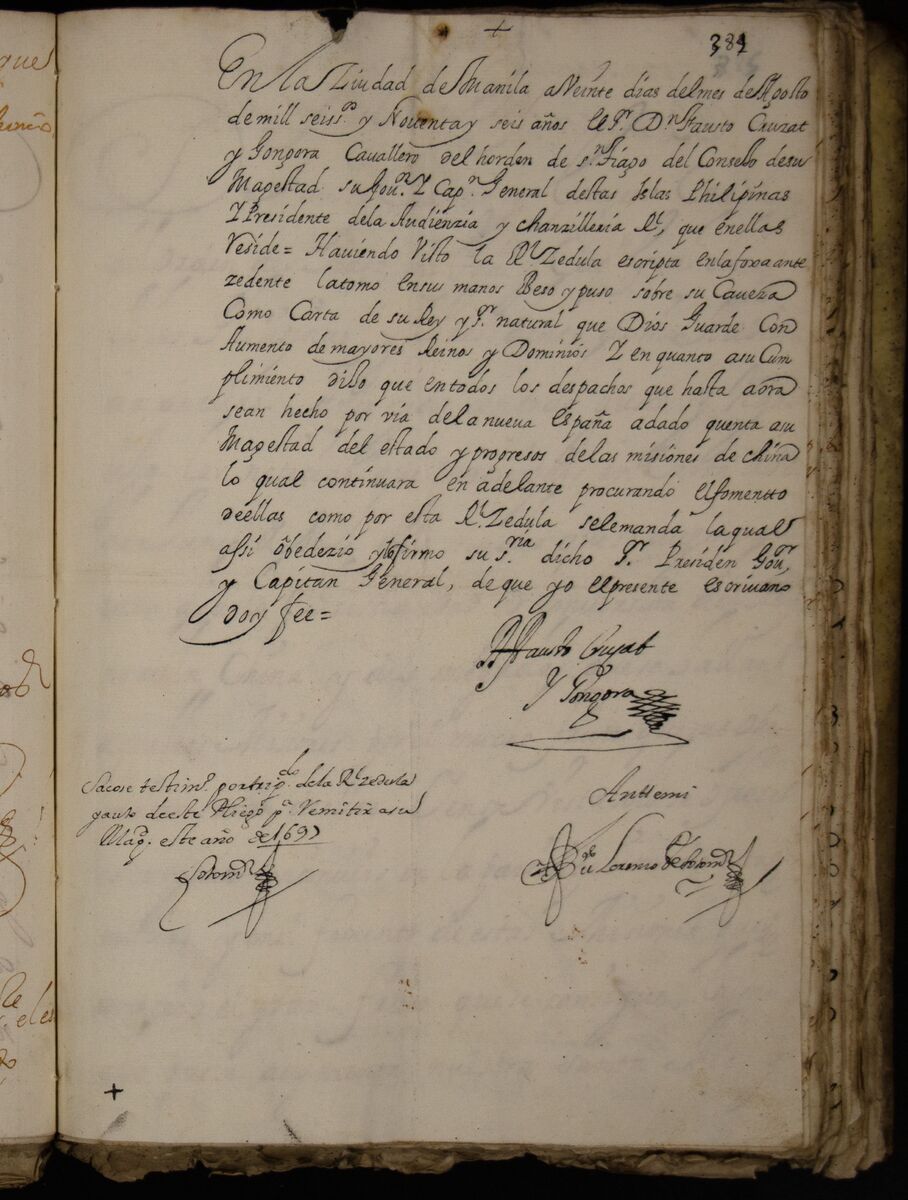 +
384
En la Ziudad de Manila a Veinte dias del mes de Agosto
de mill seiss.s y Noventa y seis años el S.r D.n Fausto Cruzat
y Gongora Cavallero del horden de s.n Tiago del Consejo de su
Magestad su Gov.r Y Cap.n General destas Islas Philipinas
Y Presidente de la Audienzia y chanzilleria R.l, que en ellas
Reside = Haviendo Visto la R.l Zedula escripta en la foxa ante
zedente la tomo en sus manos Beso y puso sobre su Caveza
Como Carta de su Rey y S.r natural que Dios Guarde Con
Aumento de mayores Reinos y Dominios Y en quanto a su Cum
plimiento dijo que en todos los despachos que hasta aora
se an hecho por via de la nueva España a dado quenta a su
Magestad del estado y progresos de las misiones de china
lo qual continuara en adelante procurando el fomentto
de ellas como por esta R.l Zedula se le manda la qual
assi obedezio y lo firmo su s.ria dicho S.r Presiden Gov.r
y Capitan General, de que yo el presente escrivano
doy fee =
D Fausto Cruzat
Y Gongora
Sacose testim.o por trip.do de la R.l zedula
y auto de este Pliego p.a Remitir a su
Mag. este año de 1697
Antemi
Lorenzo